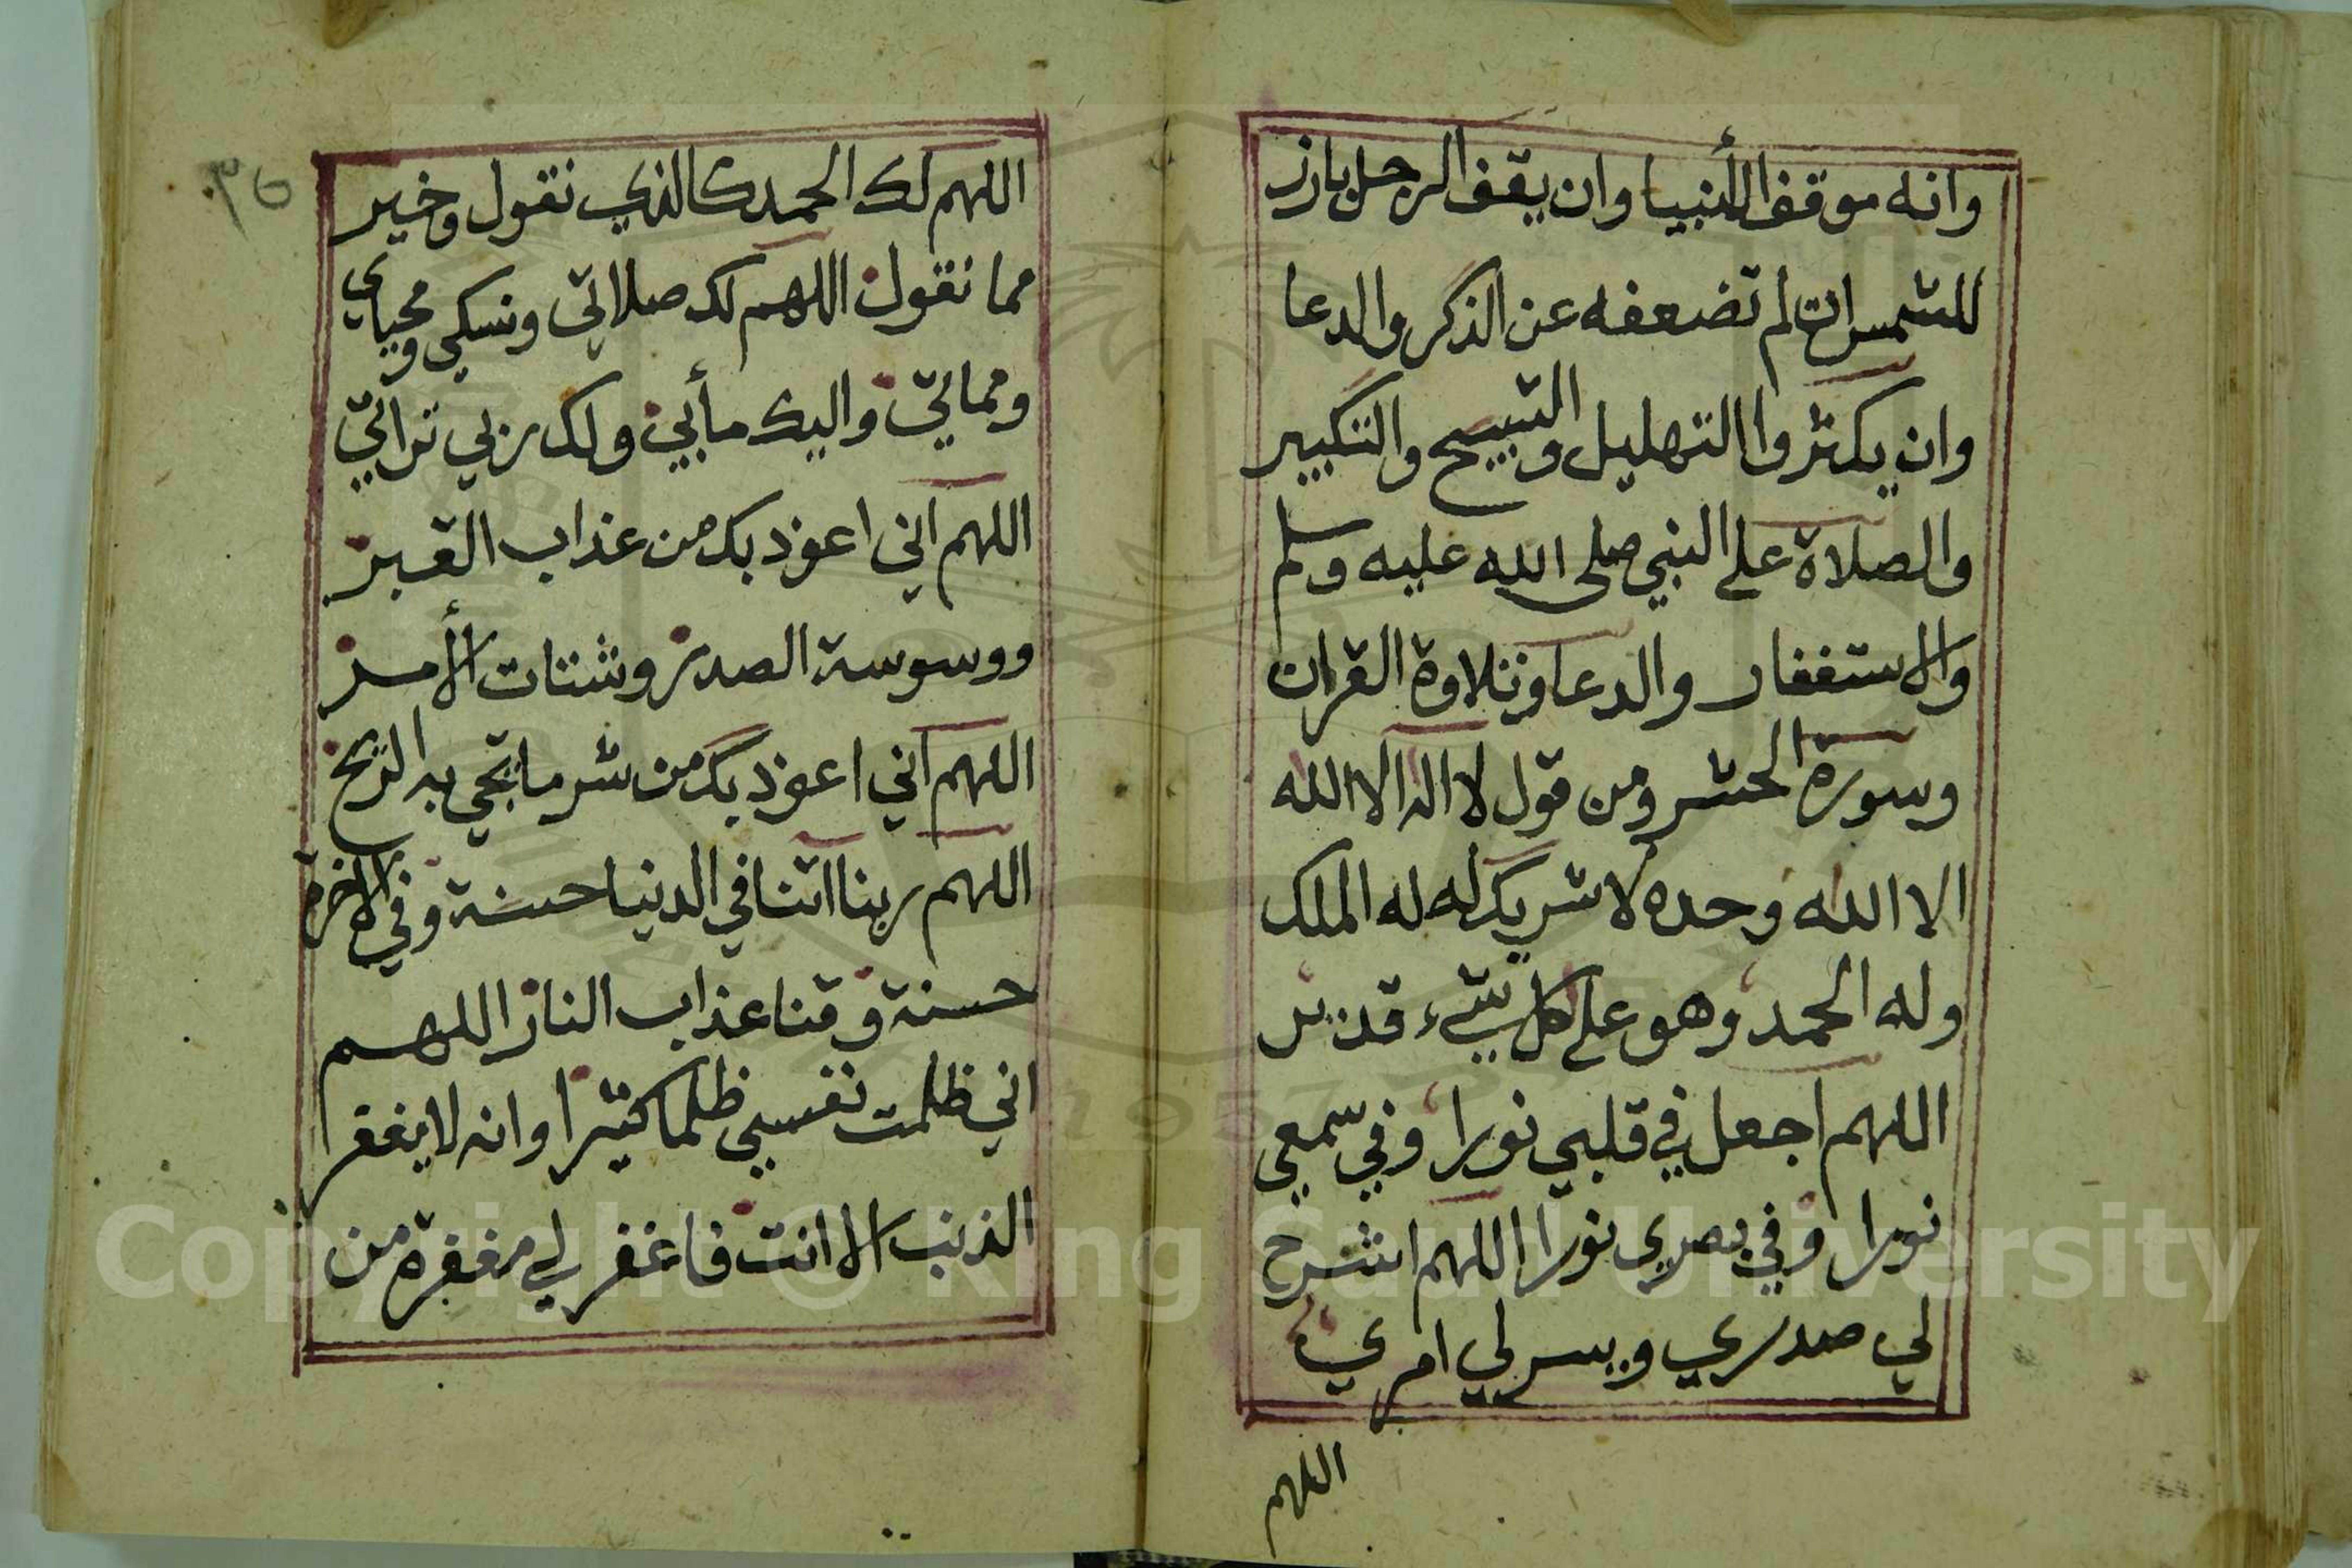 وانه موقف الأنبيا وان يقف الرجل بارز
للشمس ان لم تضعفه عن الذكر والدعا
وان يكثروا التهليل والتسبيح والتكبير
والصلاة على النبي صلى الله عليه وسلم
والاستغفار والدعا وتلاوة القران
وسورة الحشر ومن قول لا اله الا الله
الا الله وحده لا شريك له له الملك
وله الحمد وهو على كل شيء قدير
اللهم اجعل في قلبي نورا وفي سمعي
نورا وفي بصري نورا اللهم اشرح
لي صدري ويسر لي امري
اللهم
٣٥
اللهم لك الحمد كالذي نقول وخير
مما نقول اللهم لك صلاتي ونسكي ومحياي
ومماتي واليك مأبي ولك ربي تراثي
اللهم اني اعوذ بك من عذاب القبر
ووسوسة الصدر وشتات الأمر
اللهم اني اعوذ بك من شر ما تجي به الريح
اللهم ربنا اتنا في الدنيا حسنة وفي الاخرة
حسنة وقنا عذاب النار اللهم
اني ظلمت نفسي ظلما كثيرا وانه لا يغفر
الذنب الا انت فاغفر لي مغفرة من
Copyright © King Saud University
1957